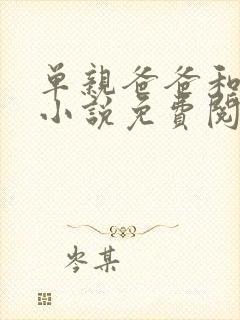 单親爸爸和
小說免費閱
岑某